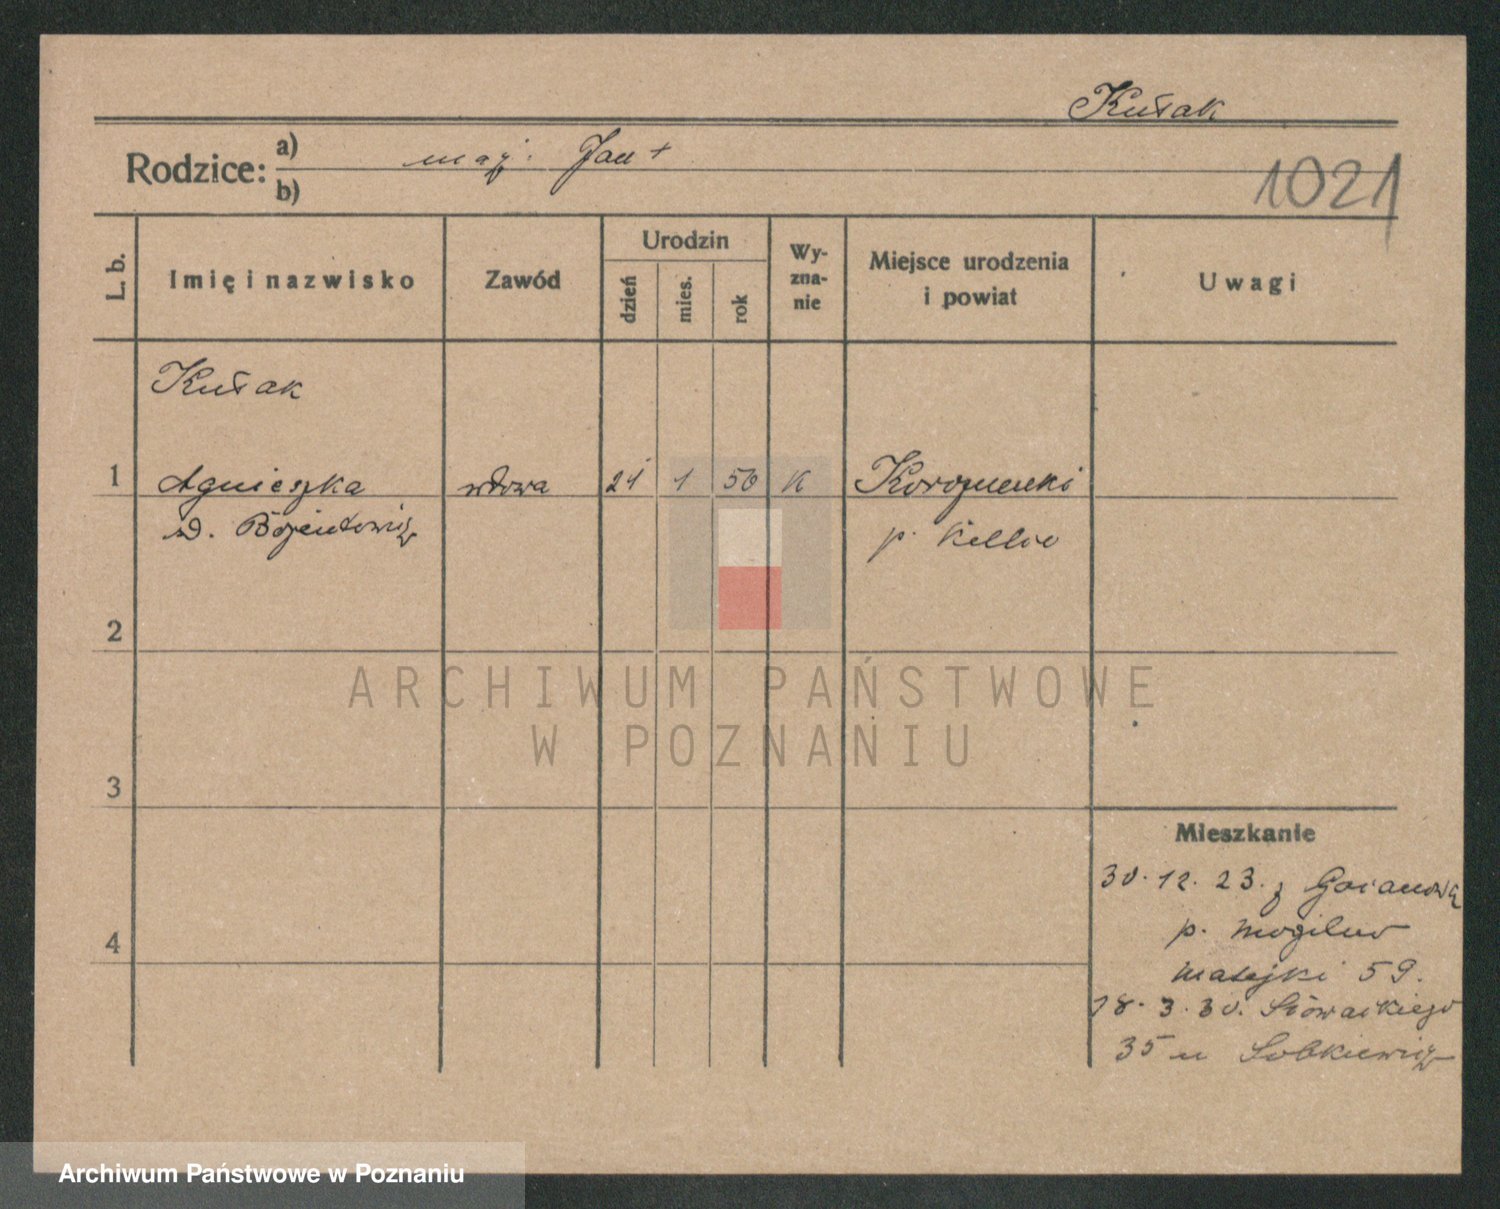 Kułak
Rodzice:
a) mąż. Jan +
b)
1021
L. b.
Imię i nazwisko
Zawód
Urodzin
dzień
mies.
rok
Wy-
zna-
nie
Miejsce urodzenia
i powiat
Uwagi
Kułak
1 Agnieszka wdowa 21 1 56 K
D.
p.
2
ARCHIWUM PAŃSTWOWE
W POZNANIU
3
Mieszkanie
30. 12. 23. z
p. Mogilno
4
Matejki 59.
18. 3. 30. Słowackiego
35 u Sobkiewicz
Archiwum Państwowe w Poznaniu